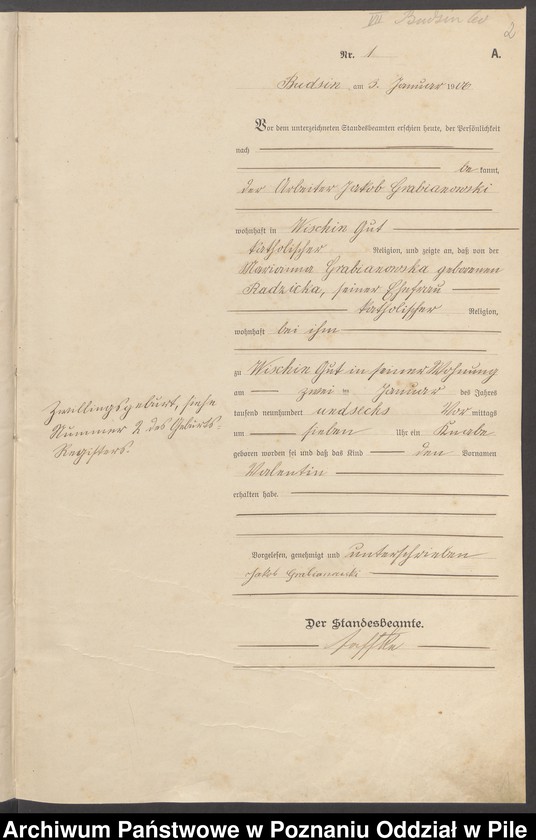 VII Budsin
2
Nr. 1 A.
Budsin, am 3. Januar 1906
Vor dem unterzeichneten Standesbeamten erschien heute, der Persönlichkeit
nach
be kannt,
der Arbeiter Jakob Grabianowski
wohnhaft in Wischin Gut
katholischer Religion, und zeigte an, daß von der
Marianna Grabianowska geborenen
Radzicka, seiner Ehefrau
katholischer Religion,
wohnhaft bei ihm
zu Wischin Gut in seiner Wohnung
am zwei ten Januar des Jahres
tausend neunhundert undsechs Vor mittags
um sieben Uhr ein Knabe
geboren worden sei und daß das Kind den Vornamen
Valentin
erhalten habe.
Zwillingsgeburt, siehe
Nummer 2 des Geburts-
Registers.
Vorgelesen, genehmigt und unterschrieben
Jakob Grabianowski
Der Standesbeamte.
Archiwum Państwowe w Poznaniu Oddział w Pile